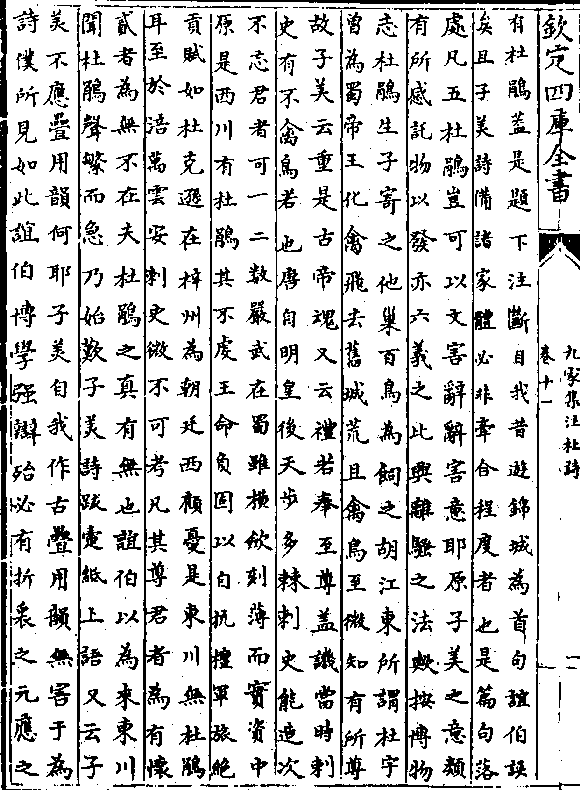 欽定四庫全書
九家集注杜詩
卷十一
一
有杜鵑蓋是題下注斷自我昔遊錦城為首句誼伯誤
矣且子美詩備諸家體必非牽合程度者也是篇句落
處凡五杜鵑豈可以文害辭辭害意耶原子美之意類
有所感託物以發亦六義之比興離騷之法歟按博物
志杜鵑生子寄之他巢百鳥為飼之胡江東所謂杜宇
曾為蜀帝王化禽飛去舊城荒且禽鳥至微知有所尊
故子美云重是古帝魂又云禮若奉至尊盖譏當時刺
史有不禽鳥若也唐自明皇後天步多棘刺史能造次
不忘君者可一二數嚴武在蜀雖横歛刻薄而實資中
原是西川有杜鵑其不䖍王命負固以自抗擅軍旅絶
貢賦如杜克遜在梓州為朝廷西顧憂是東川無杜鵑
耳至於涪萬雲安刺史微不可考凡其尊君者為有懷
貳者為無不在夫杜鵑之真有無也誼伯以為来東川
聞杜鵑聲繁而急乃始歎子美詩跋疐紙上語又云子
美不應疊用韻何耶子美自我作古疊用韻無害于為
詩僕所見如此誼伯博學强辯殆必有折衷之元應之